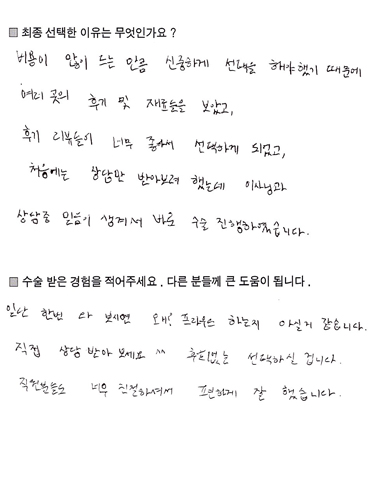 ■ 최종 선택한 이유는 무엇인가요 ?
비용이 많이 드는 만큼 신중하게 선택을 해야했기 때문에
여러 곳의 후기 및 자료들을 보았고,
후기 리뷰들이 너무 좋아서 선택하게 되었고,
처음에는 상담만 받아보려 했는데 이사님과
상담중 믿음이 생겨서 바로 수술 진행하였습니다.
■ 수술 받은 경험을 적어주세요 . 다른 분들께 큰 도움이 됩니다 .
일단 한번 다 보시면 왜? 하는지 아실거 같습니다.
직접 상담 받아 보세요 ^^ 후회없는 선택하실 겁니다.
직원분들도 너무 친절하셔서 편하게 잘 했습니다.